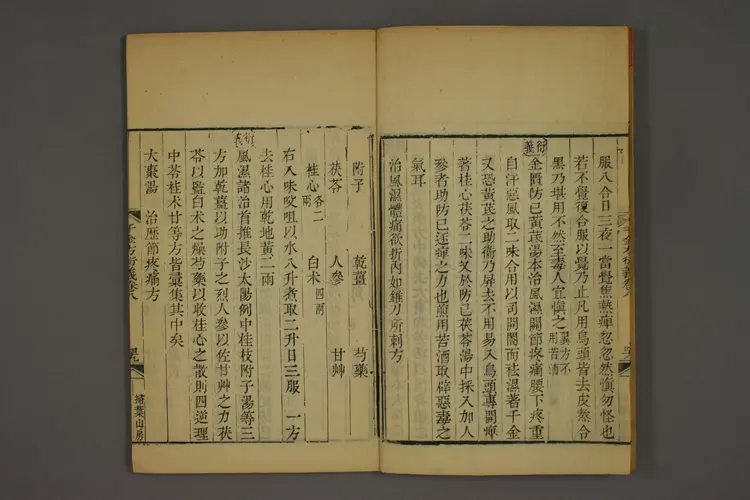 服八合日三夜一當覺焦熱痺忽忽然慎勿怪也
若不覺復合服以覺乃止凡用烏頭皆去皮熬令
黑乃堪用不然至毒人宜慎之翼方不用苦酒
衍義
金匱防己黃芪湯本治風濕關節疼痛腰下疼重
自汗惡風取二味合用以司開闔而祛濕著千金
又恐黃芪之助衛乃屏去不用易入烏頭專開痺
著桂心茯苓二味又於防己茯苓湯中採入加人
參者助防己逐痺之力也煎用苦酒取辟惡毒之
氣耳
治風濕體痛欲折肉如錐刀所刺方
附子 乾薑 芍藥
茯苓 人參 甘艸
桂心各二兩 白朮四兩
右八味㕮咀以水八升煮取二升日三服 一方
去桂心用乾地黃二兩
衍義
風濕諸治首推長沙太陽例中桂枝附子湯等三
方加乾薑以助附子之烈人參以佐甘艸之力茯
苓以監白朮之燥芍藥以收桂心之散則四逆理
中苓桂朮甘等方皆彙集其中矣
大棗湯 治歷節疼痛方
千金方衍義卷八
掃葉山房